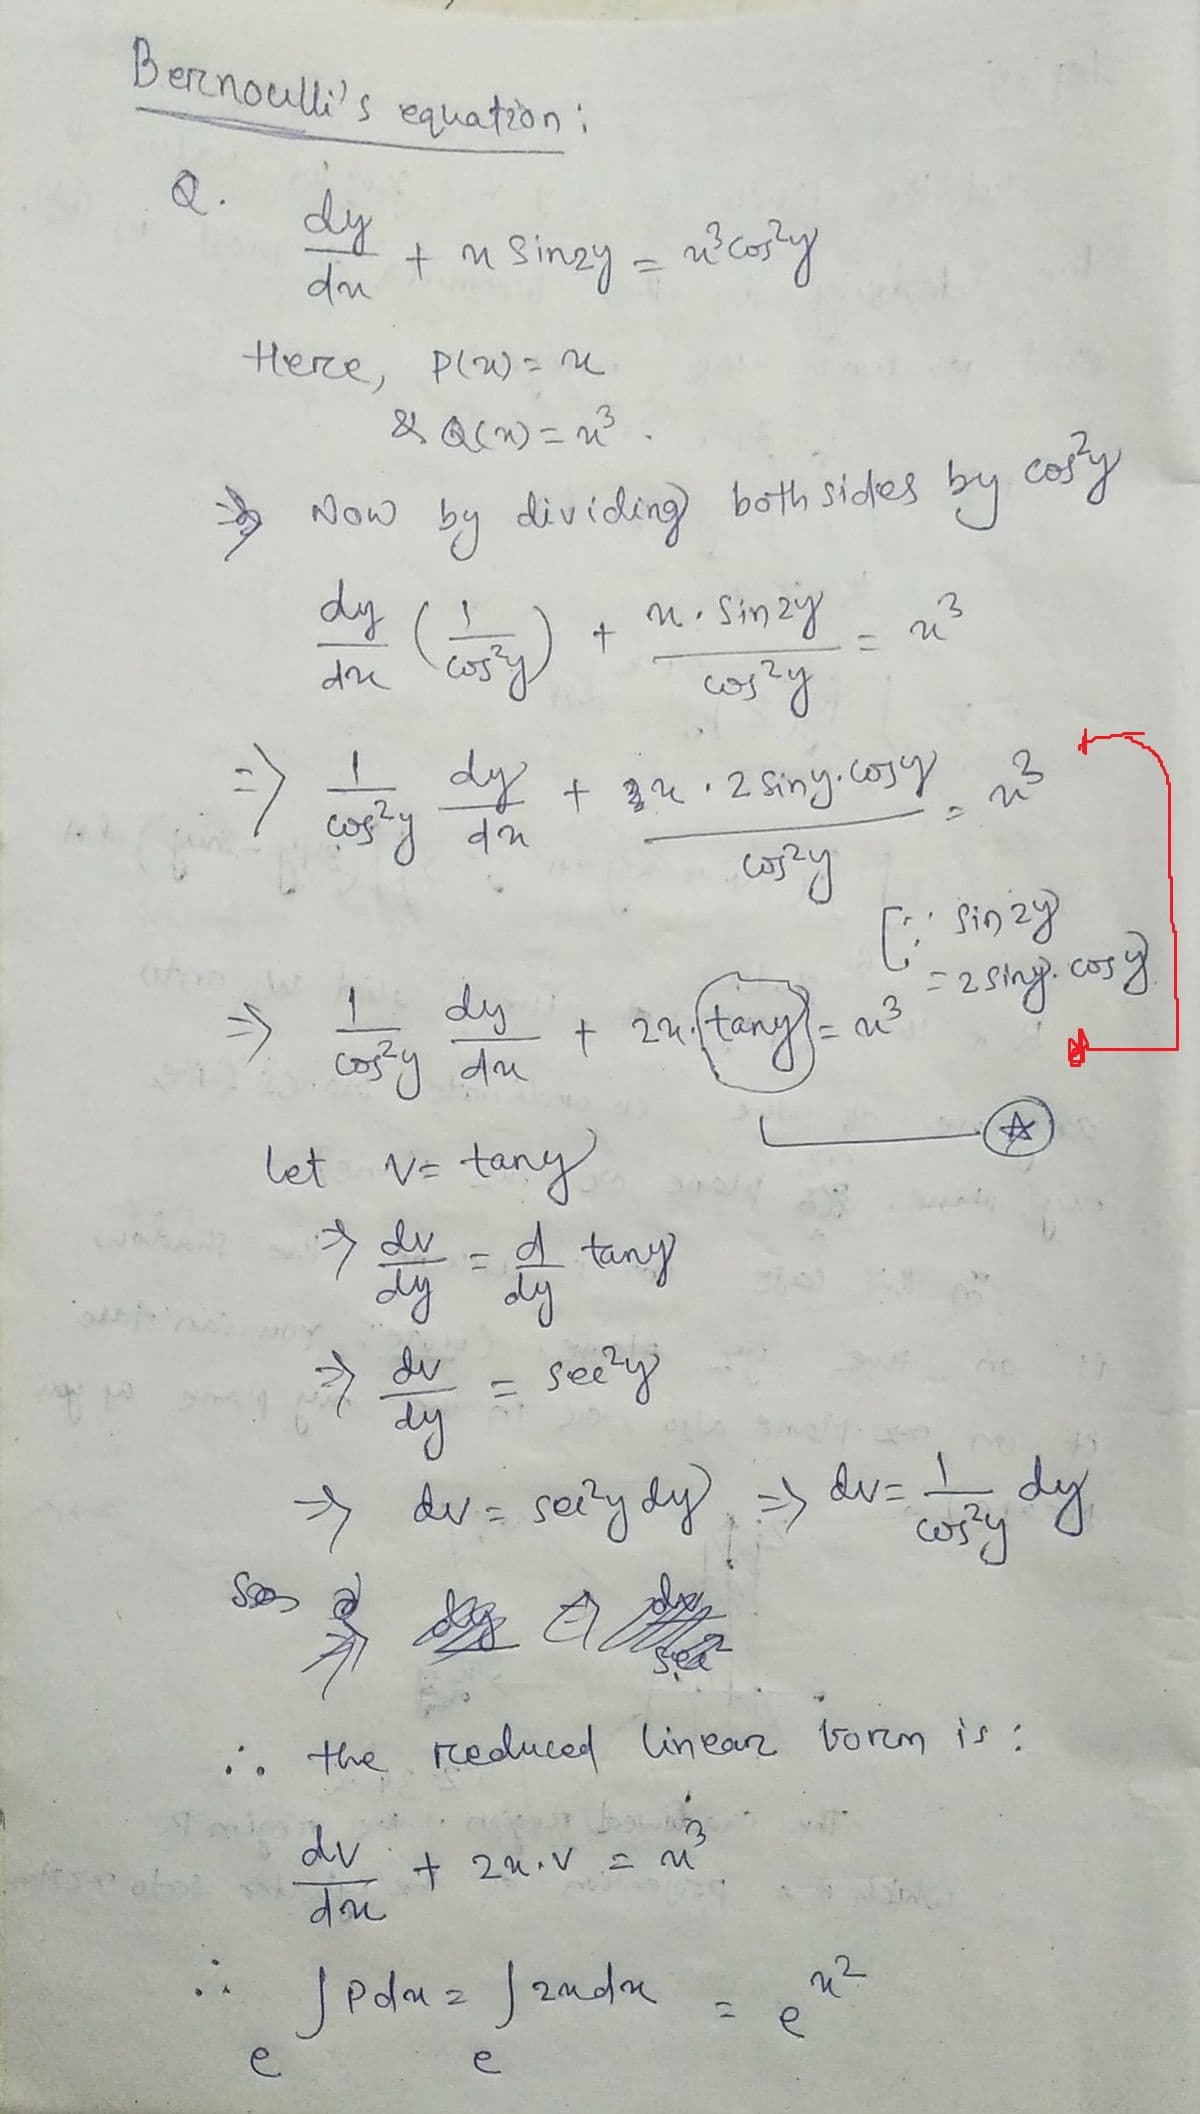 Bernoulli's equation:
Q. dy/dx + x sin2y = x³cos²y
Here, P(x) = x
& Q(x) = x³.
⇒ Now by dividing both sides by cos²y
dy/dx (1/cos²y) + x. sin2y/cos²y = x³
⇒ 1/cos²y dy/dx + x . 2 siny.cosy/cos²y = x³
[∵ sin2y
= 2 siny. cosy
⇒ 1/cos²y dy/dx + 2x.(tany) = x³
let v = tany
⇒ dv/dy = d/dy tany
⇒ dv/dy = sec²y
⇒ dv = sec²y dy ⇒ dv = 1/cos²y dy
∴ the reduced linear form is:
dv/dx + 2x.v = x³
∴ e^∫Pdx = e^∫2xdx = e^x²